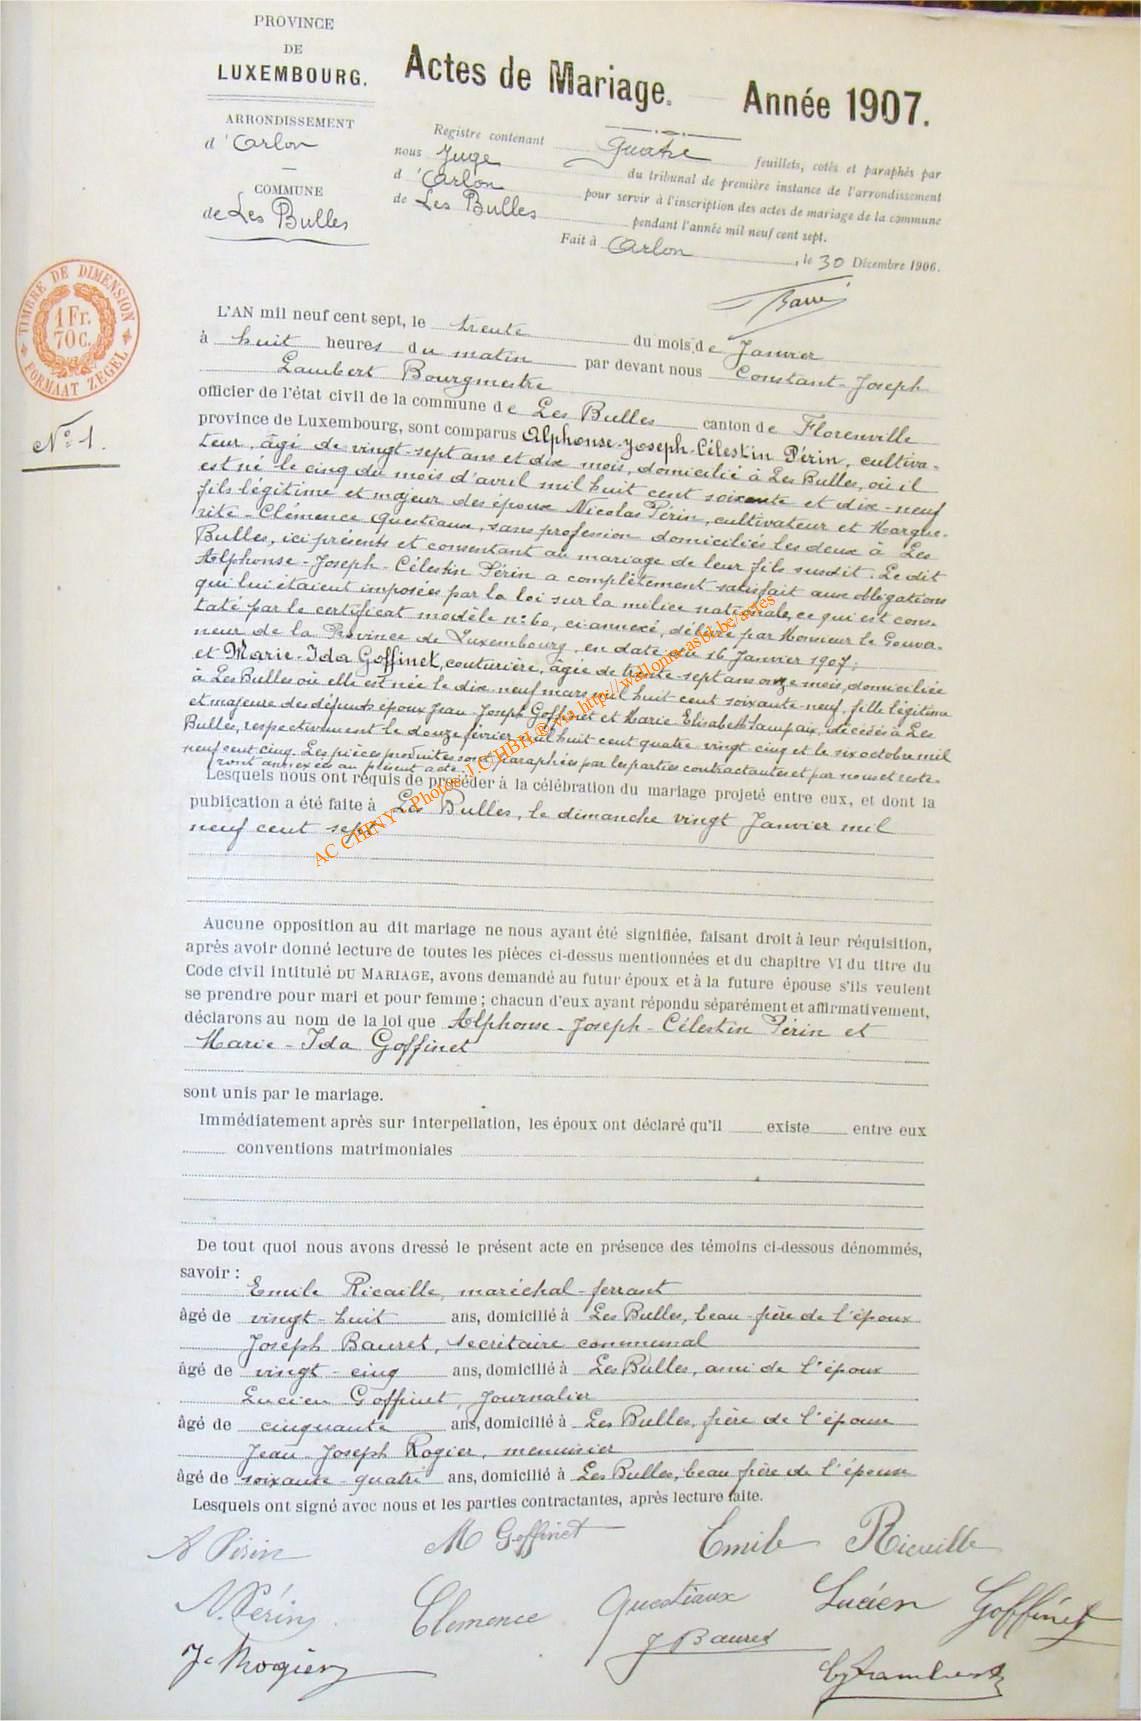 PROVINCE
DE
LUXEMBOURG.
ARRONDISSEMENT
d'Arlon
COMMUNE
de Les Bulles
Actes de Mariage. — Année 1907.
Registre contenant Quatre feuillets, cotés et paraphés par
nous Juge du tribunal de première instance de l'arrondissement
d'Arlon pour servir à l'inscription des actes de mariage de la commune
de Les Bulles pendant l'année mil neuf cent sept.
Fait à Arlon, le 30 Décembre 1906.
TIMBRE DE DIMENSION
1 Fr.
70 C.
FORMAAT ZEGEL
N° 1.
L'AN mil neuf cent sept, le trente du mois de Janvier
à huit heures du matin par devant nous Constant-Joseph
Lambert Bourgmestre
officier de l'état civil de la commune de Les Bulles canton de Florenville
province de Luxembourg, sont comparus Alphonse-Joseph-Célestin Périn, cultiva-
teur, âgé de vingt-sept ans et dix mois, domicilié à Les Bulles, où il
est né le cinq du mois d'avril mil huit cent soixante et dix-neuf
fils légitime et majeur des époux Nicolas Périn, cultivateur et Margue-
rite-Clémence Questiaux, sans profession domiciliés les deux à Les
Bulles, ici présents et consentant au mariage de leur fils susdit. Le dit
Alphonse-Joseph-Célestin Périn a complètement satisfait aux obligations
qui lui étaient imposées par la loi sur la milice nationale, ce qui est cons-
taté par le certificat modèle n° 60, ci-annexé, délivré par Monsieur le Gouver-
neur de la Province de Luxembourg, en date du 16 Janvier 1907;
et Marie-Ida Goffinet, couturière, âgée de trente-sept ans onze mois, domiciliée
à Les Bulles où elle est née le dix-neuf mars mil huit cent soixante-neuf, fille légitime
et majeure des défunts époux Jean-Joseph Goffinet et Marie Elisabeth Lampaix, décédés à Les
Bulles, respectivement le douze février mil huit cent quatre vingt cinq et le six octobre mil
neuf cent cinq. Les pièces produites sont paraphées par les parties contractantes et par nous et reste-
ront annexées au présent acte.
Lesquels nous ont requis de procéder à la célébration du mariage projeté entre eux, et dont la
publication a été faite à Les Bulles, le dimanche vingt Janvier mil
neuf cent sept
AC CHINY - Photos J.C HBH ® via http://wallonia-asbl.be/actes
Aucune opposition au dit mariage ne nous ayant été signifiée, faisant droit à leur réquisition,
après avoir donné lecture de toutes les pièces ci-dessus mentionnées et du chapitre VI du titre du
Code civil intitulé DU MARIAGE, avons demandé au futur époux et à la future épouse s'ils veulent
se prendre pour mari et pour femme ; chacun d'eux ayant répondu séparément et affirmativement,
déclarons au nom de la loi que Alphonse-Joseph-Célestin Périn et
Marie-Ida Goffinet
sont unis par le mariage.
Immédiatement après sur interpellation, les époux ont déclaré qu'il existe entre eux
conventions matrimoniales
De tout quoi nous avons dressé le présent acte en présence des témoins ci-dessous dénommés,
savoir :
Emile Ricaille, maréchal-ferrant
âgé de vingt-huit ans, domicilié à Les Bulles, beau-frère de l'époux
Joseph Bauret, secrétaire communal
âgé de vingt-cinq ans, domicilié à Les Bulles, ami de l'époux
Lucien Goffinet, Journalier
âgé de cinquante ans, domicilié à Les Bulles, frère de l'épouse
Jean-Joseph Rogier, menuisier
âgé de soixante-quatre ans, domicilié à Les Bulles, beau frère de l'épouse
Lesquels ont signé avec nous et les parties contractantes, après lecture faite.
A Périn M Goffinet Emile Ricaille
N. Périn Clemence Questiaux Lucien Goffinet
J Rogier J Bauret CJ Lambert